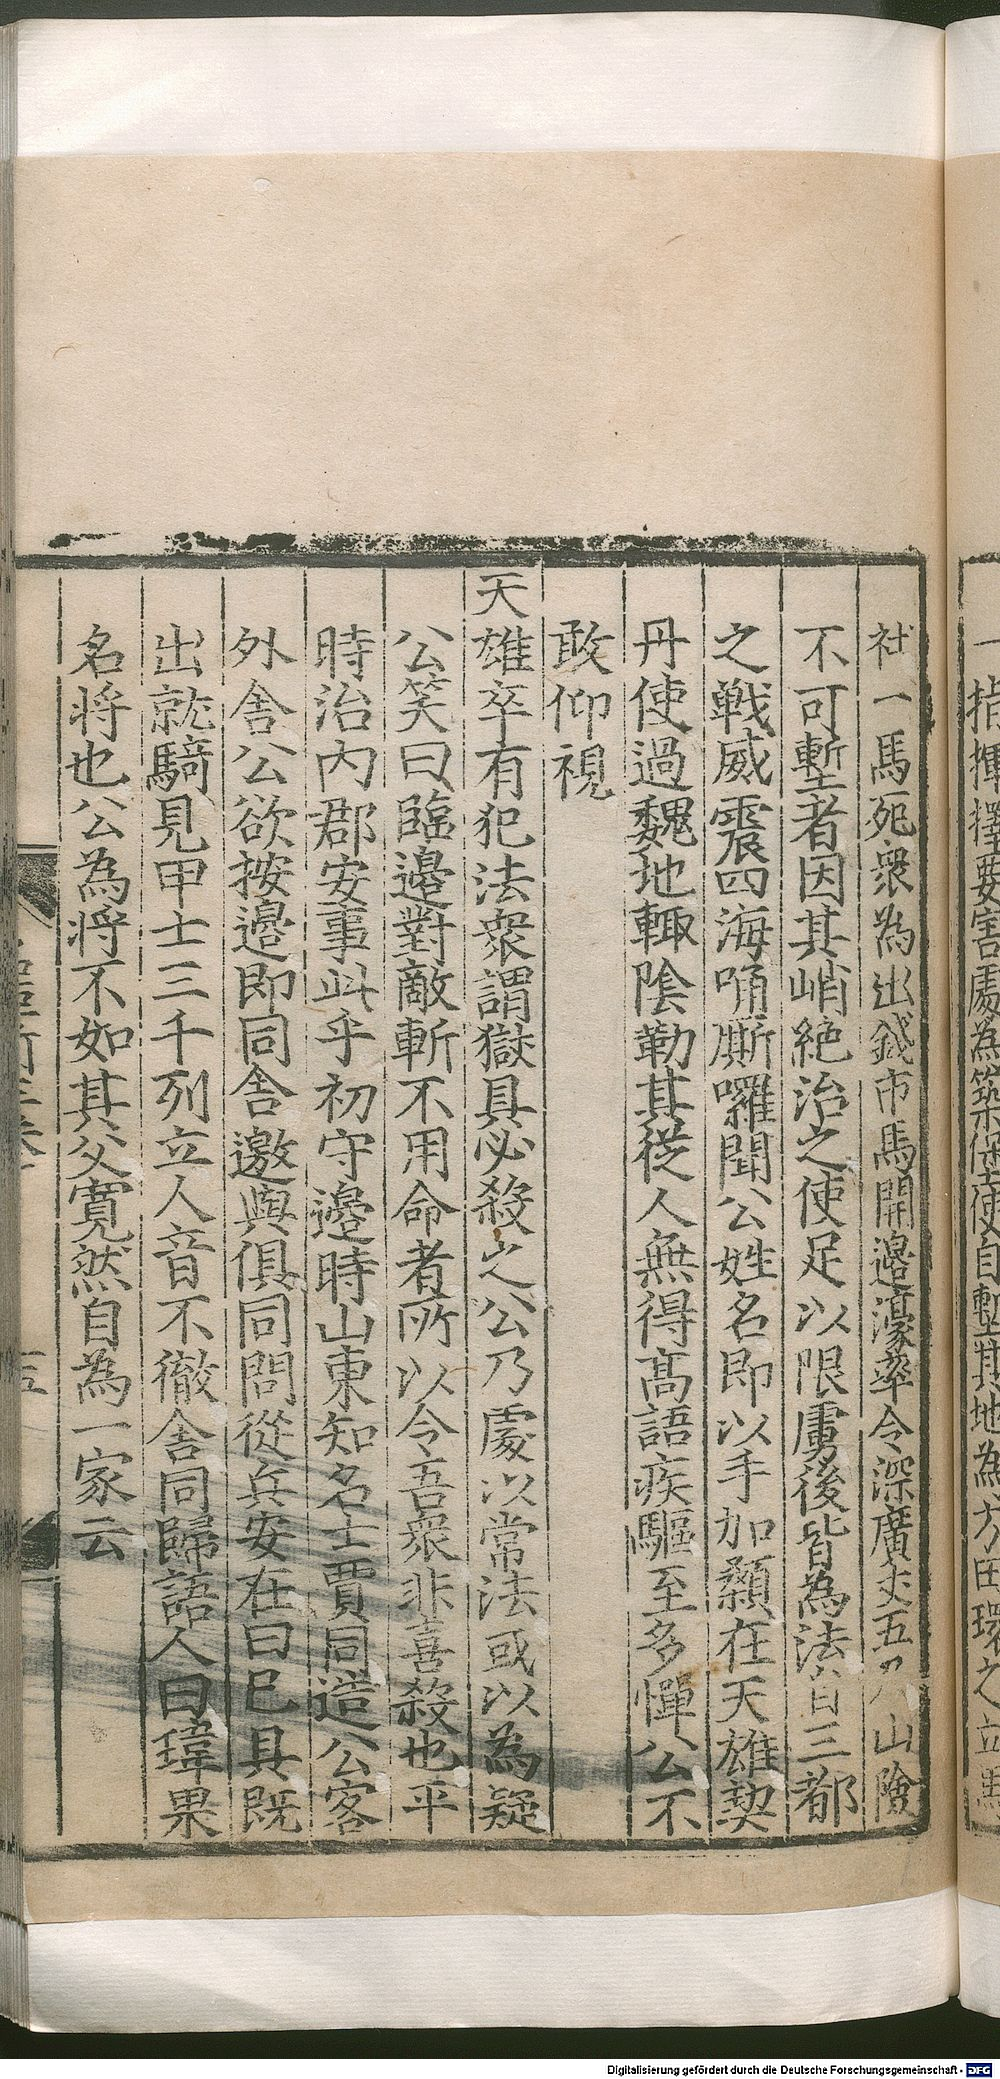 一指揮擇要害處為築堡使自塹其地為方田環之立馬
社一馬死衆為出錢市馬開邊濠率令深廣丈五 山險
不可塹者因其峭絶治之使足以限虜後皆為法 三都
之戰威震四海唃厮囉聞公姓名即以手加顙在天雄契
丹使過魏地輙隂勒其從人無得髙語疾驅至多憚公不
敢仰視
天雄卒有犯法衆謂獄具必殺之公乃處以常法或以為疑
公笑曰臨邊對敵斬不用命者所以令吾衆非喜殺也平
時治内郡安事此乎初守邊時山東知名士賈同造公客
外舍公欲按邊即同舍邀與俱同問從兵安在曰已具既
出就騎見甲士三千列立人音不徹舍同歸語人曰瑋果
名將也公為將不如其父寛然自為一家云
十五
Digitalisierung gefördert durch die Deutsche Forschungsgemeinschaft - DFG